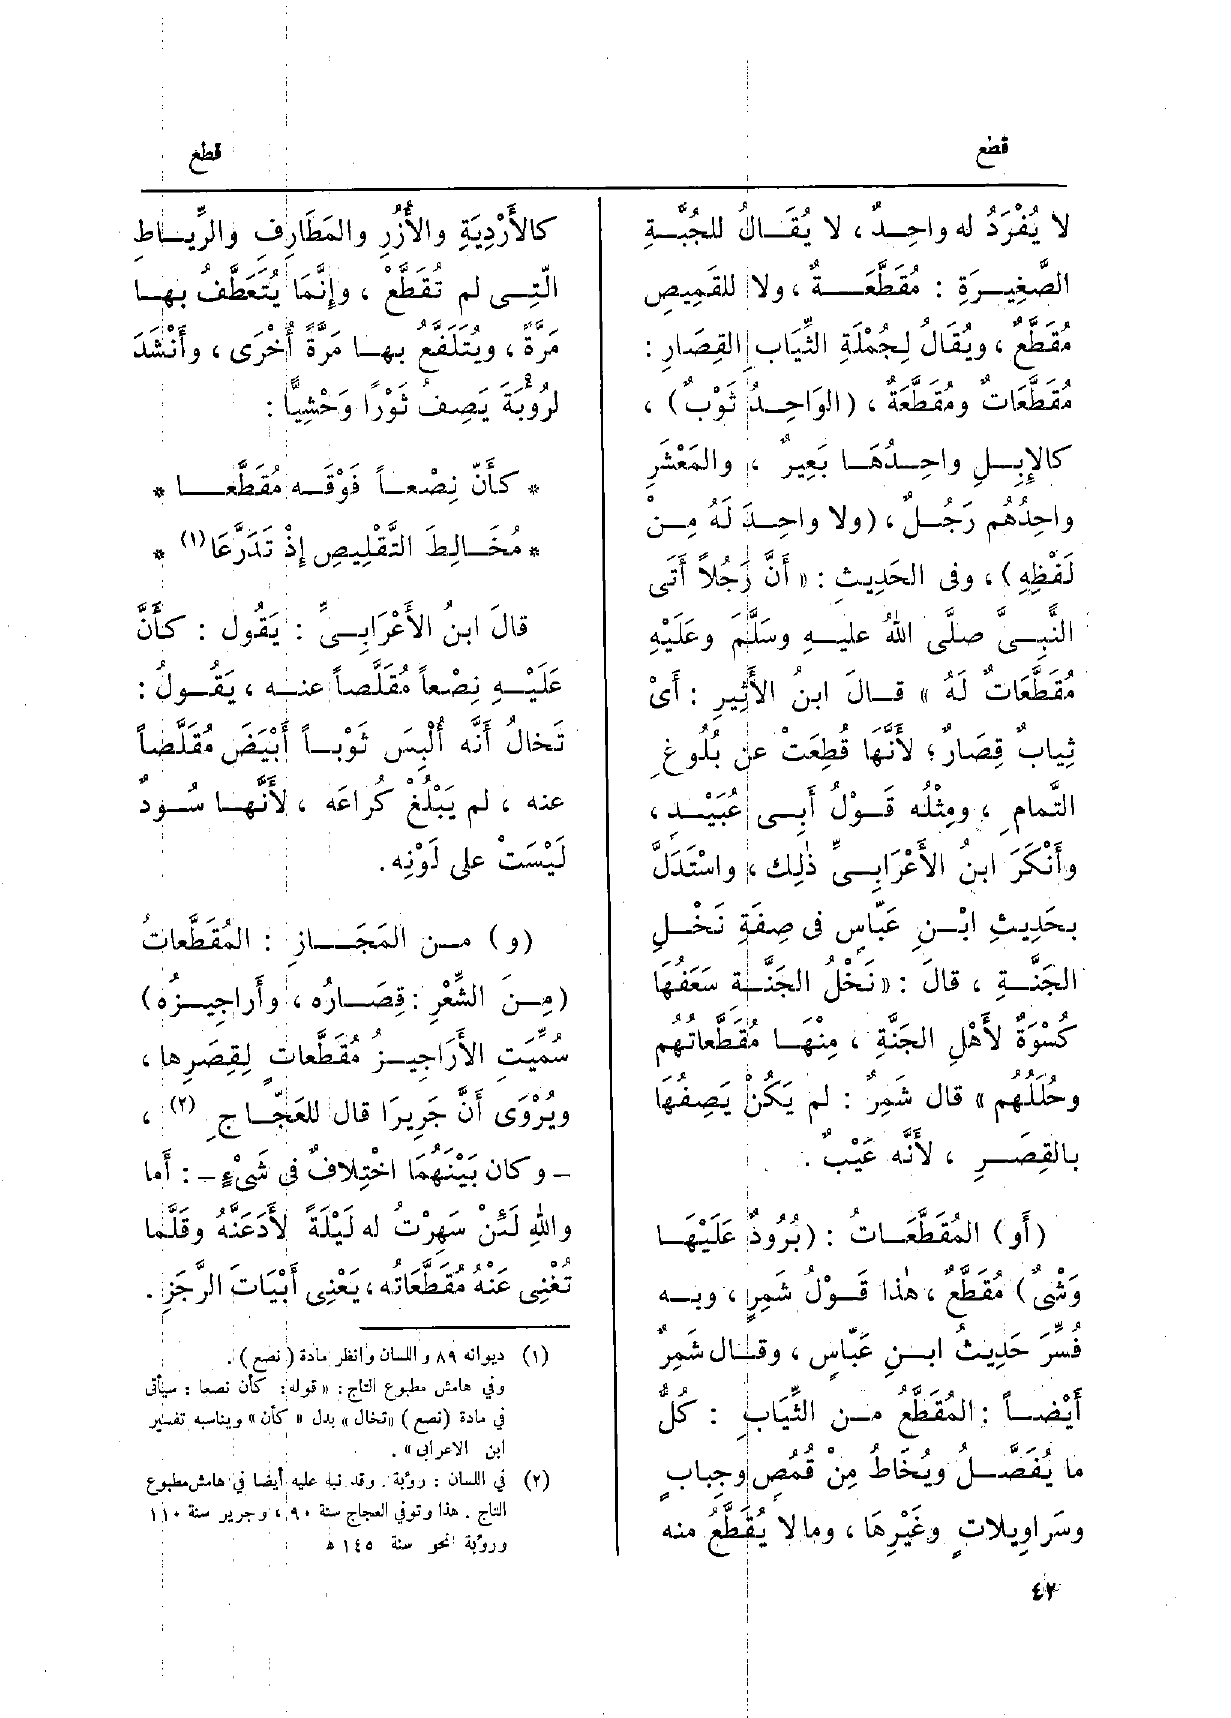 قطع
قطع
لا يُفْرَدُ له واحِدٌ، لا يُقَالُ للجُبَّةِ
الصَّغِيرَةِ : مُقَطَّعَةٌ، ولا للقَمِيصِ
مُقَطَّعٌ، ويُقَالُ لِجُمْلَةِ الثِّيَابِ القِصَارِ :
مُقَطَّعَاتٌ ومُقَطَّعَةٌ، (الوَاحِدُ ثَوْبٌ) ،
كالإِبِلِ واحِدُهَا بَعِيرٌ ، والمَعْشَرِ
واحِدُهُم رَجُلٌ، (ولا واحِدَ لَهُ مِنْ
لَفْظِهِ)، وفى الحَدِيثِ : «أَنَّ رَجُلاً أَتَى
النَّبِىَّ صلَّى اللهُ عليهِ وسَلَّمَ وعَلَيْهِ
مُقَطَّعَاتٌ لَهُ» قَالَ ابنُ الأَثِيرِ : أَىْ
ثِيابٌ قِصَارٌ؛ لأَنَّهَا قُطِعَتْ عن بُلُوغِ
التَّمامِ ، ومِثْلُه قَوْلُ أَبِى عُبَيْدٍ،
وأَنْكَرَ ابنُ الأَعْرَابِىِّ ذٰلِك، واسْتَدَلَّ
بحَدِيثِ ابْنِ عَبّاسٍ فى صِفَةِ نَخْلِ
الجَنَّةِ ، قالَ : «نَخْلُ الجَنَّةِ سَعَفُهَا
كُسْوَةٌ لأَهْلِ الجَنَّةِ ، مِنْهَا مُقَطَّعاتُهُم
وحُلَلُهُم» قال شَمِرٌ : لم يَكُنْ يَصِفُهَا
بالقِصَرِ ، لأَنَّه عَيْبٌ .
(أَو) المُقَطَّعَاتُ : (بُرُودٌ عَلَيْهَا
وَشْىٌ) مُقَطَّعٌ، هٰذا قَوْلُ شَمِرٍ، وبِه
فُسِّرَ حَدِيثُ ابنِ عَبّاسٍ، وقال شَمِرٌ
أَيْضاً : المُقَطَّعُ من الثِّيَابِ : كُلُّ
ما يُفَصَّلُ ويُخَاطُ مِنْ قُمُصٍ وجِبابٍ
وسَراوِيلاتٍ وغَيْرِهَا، ومالا يُقَطَّعُ منه
كالأَرْدِيَةِ والأُزُرِ والمَطَارِفِ والرِّياطِ
الَّتِى لم تُقَطَّعْ ، وإِنَّمَا يُتَعَطَّفُ بها
مَرَّةً، ويُتَلَفَّعُ بها مَرَّةً أُخْرَى، وأَنْشَدَ
لرُؤْبَةَ يَصِفُ ثَوْرًا وَحْشِيًّا :
* كأَنَّ نِصْعاً فَوْقَه مُقَطَّعا *
* مُخَالِطَ التَّقْلِيصِ إِذْ تَدَرَّعَا (١) *
قالَ ابنُ الأَعْرَابِىِّ : يَقُول : كأَنَّ
عَلَيْهِ نِصْعاً مُقَلَّصاً عنه، يَقُولُ :
تَخالُ أَنَّه أُلْبِسَ ثَوْباً أَبْيَضَ مُقَلَّصاً
عنه ، لم يَبْلُغْ كُرَاعَه ، لأَنَّها سُودٌ
لَيْسَتْ على لَوْنِه.
(و) من المَجَازِ : المُقَطَّعاتُ
(مِنَ الشِّعْرِ : قِصَارُه، وأَراجِيزُه)
سُمِّيَت الأَرَاجِيزُ مُقَطَّعاتٍ لِقِصَرِها،
ويُرْوَى أَنَّ جَرِيرًا قال للعَجّاجِ (٢) ،
- وكان بَيْنَهُمَا اخْتِلافٌ فى شَىْءٍ - : أَما
واللهِ لَئِنْ سَهِرْتُ له لَيْلَةً لأَدَعَنَّهُ وقَلَّما
تُغْنِى عَنْهُ مُقَطَّعاتُه، يَعْنِى أَبْيَاتَ الرَّجَزِ .
(١) ديوانه ٨٩ واللسان وانظر مادة (نصع) .
وفي هامش مطبوع التاج : «قوله : كأن نصعا : سيأتى
في مادة (نصع) «تخال» بدل «كأن» ويناسبه تفسير
ابن الاعرابى» .
(٢) في اللسان : رؤبة . وقد نبه عليه أيضا في هامش مطبوع
التاج . هذا وتوفي العجاج سنة ٩٠، وجرير سنة ١١٠
ورؤبة النحو سنة ١٤٥ هـ
٤٢